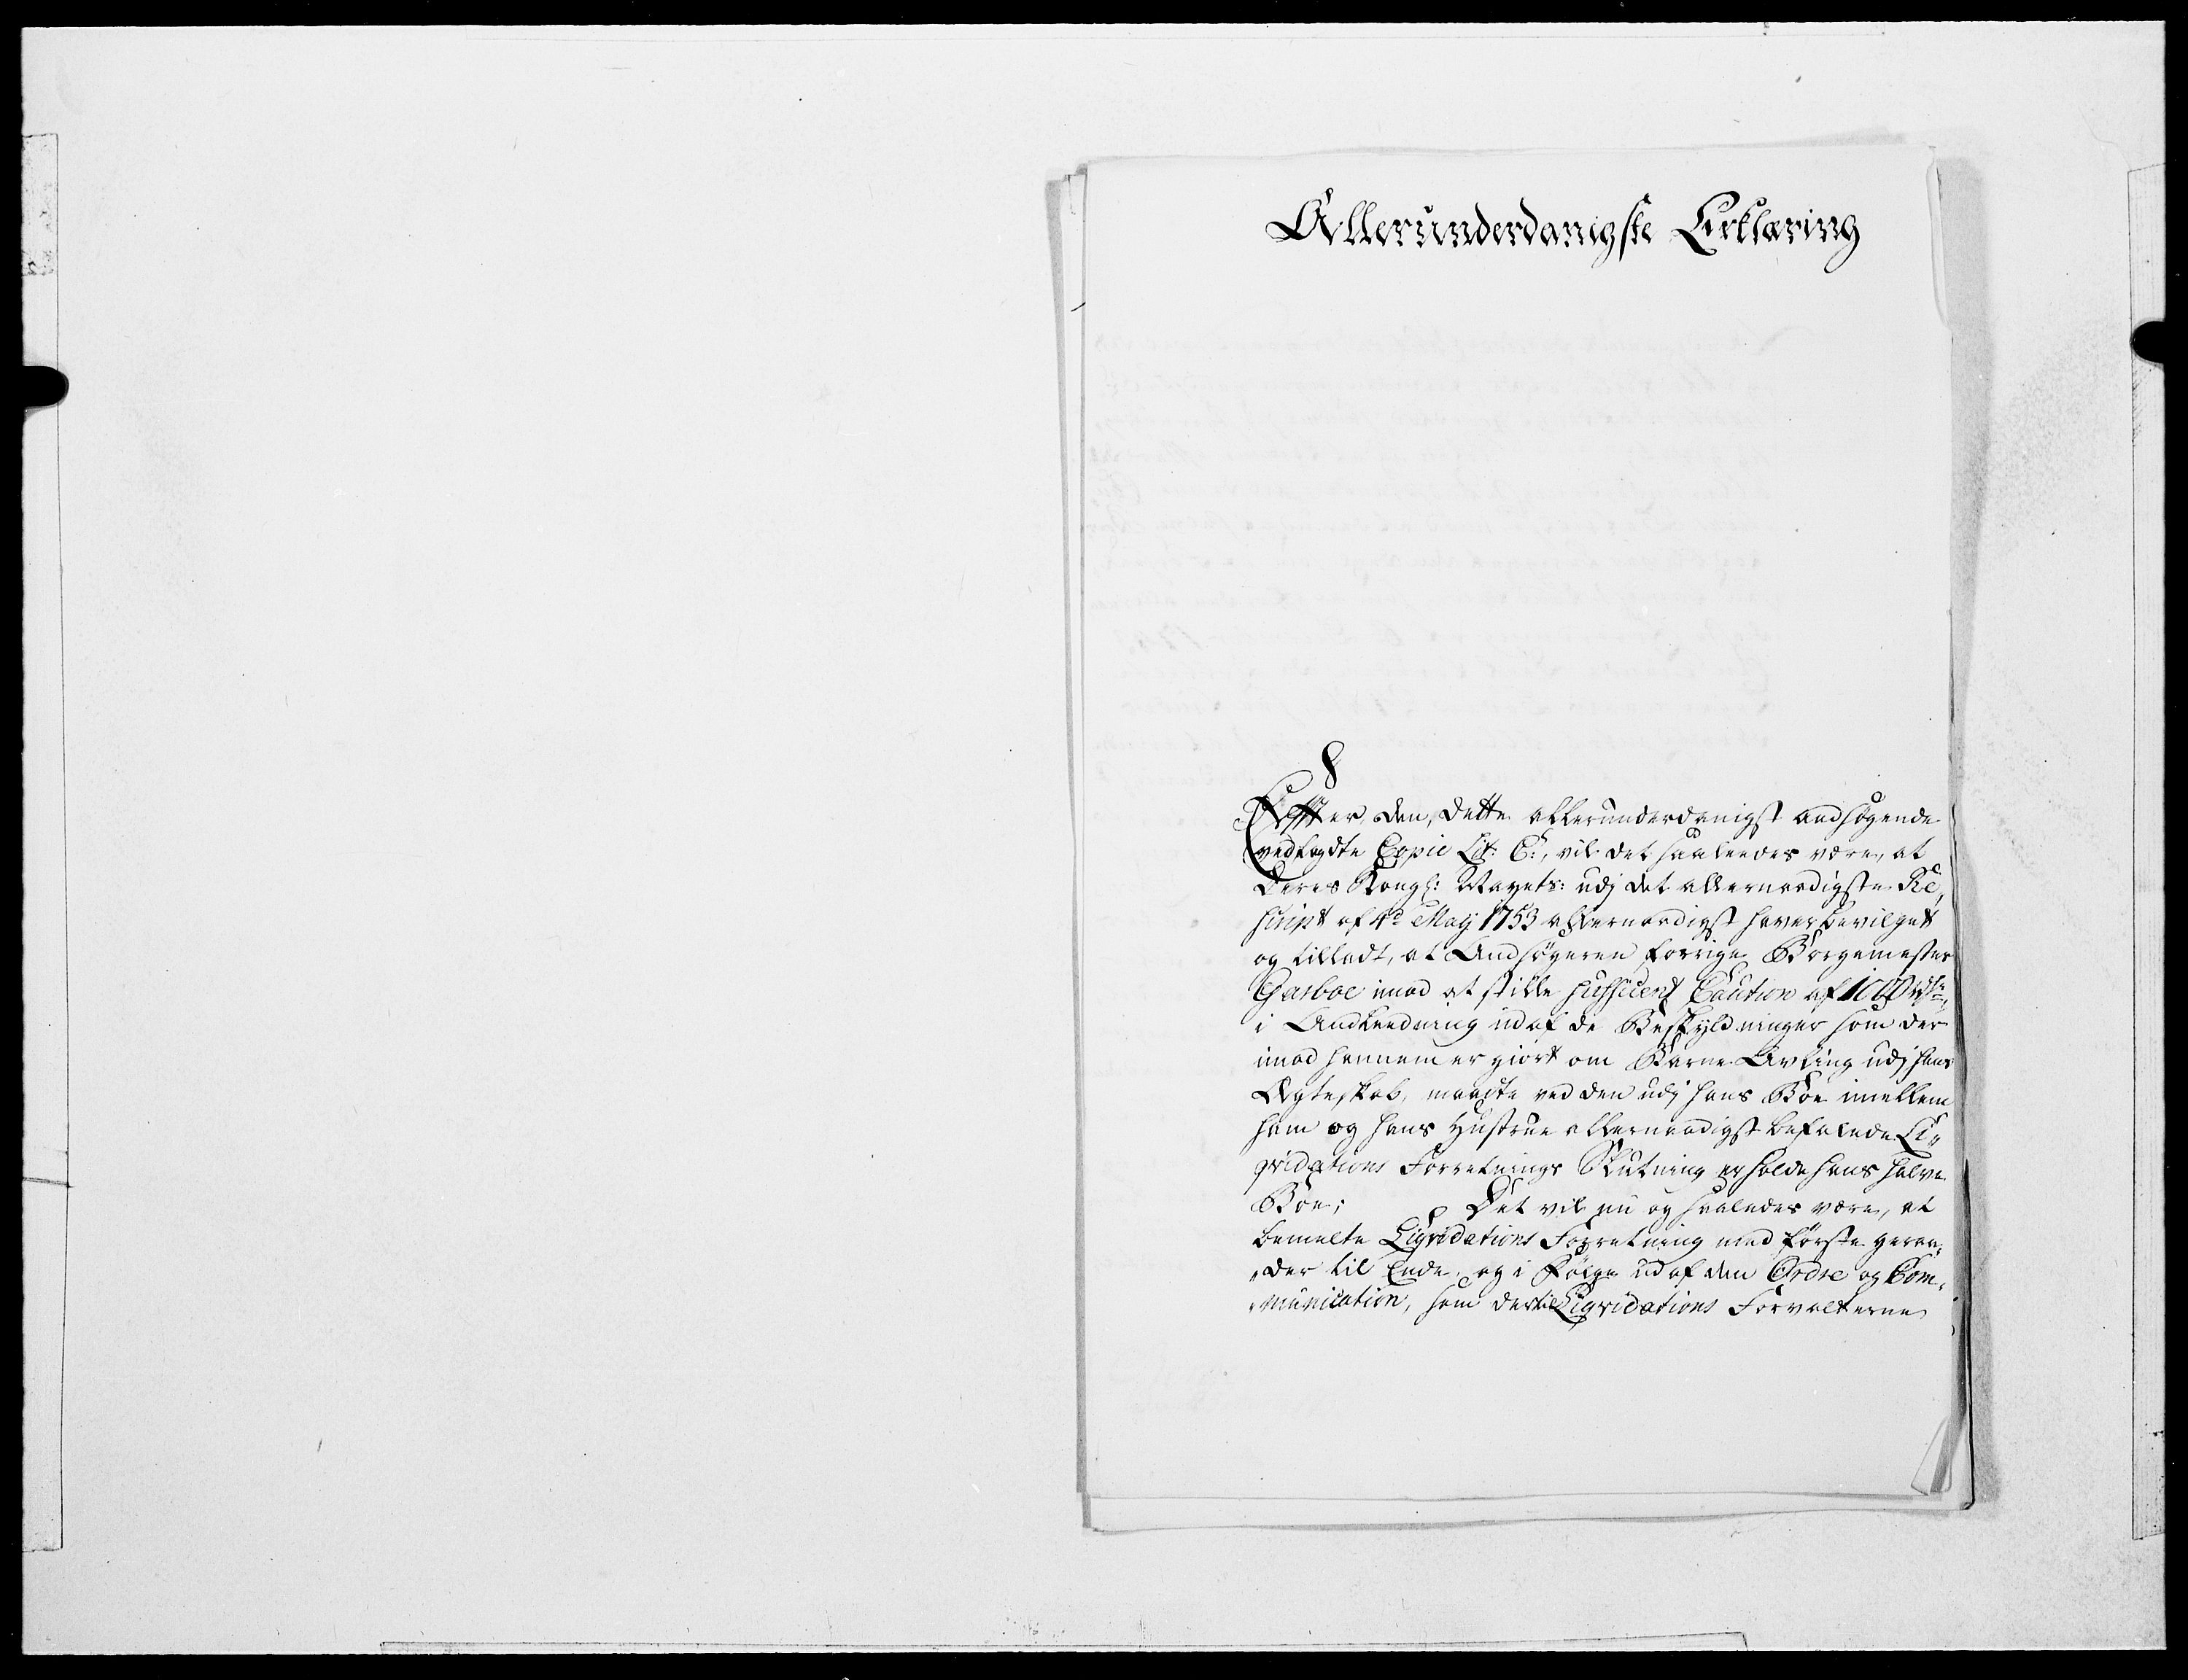 Allerunderdanigste Erklæring
Effter den, dette allerunderdanigst andsøgende
vedlagdte Copie Lit: C:, vil det saaleedes være, at
Deres Kongl: Mayets: udj det allernaadigste Re,
script af 4d May 1753 allernaadigst haver bevilget
og tilladt, at Andsøgeren forrige Borgemester
Garboe imod at stille sufficient Caution af 1000 rdr,
i Andleedning udaf de Beskyldninger som der
imod hannem er giort om Barne Avling udj hans
Ægteskab, maadte ved den udj hans Boe imellem
ham og hans Hustrue allernaadigst befalede Li„
qvidations Forretnings Slutning erholde hans halve
Boe; Det vil nu og saaledes være, at
bemelte Liqvidations Forretning med første geraa„
„der til Ende, og i Følge udaf den Ordre og Com„
„munication, som der til Liqvidations Forvalterne